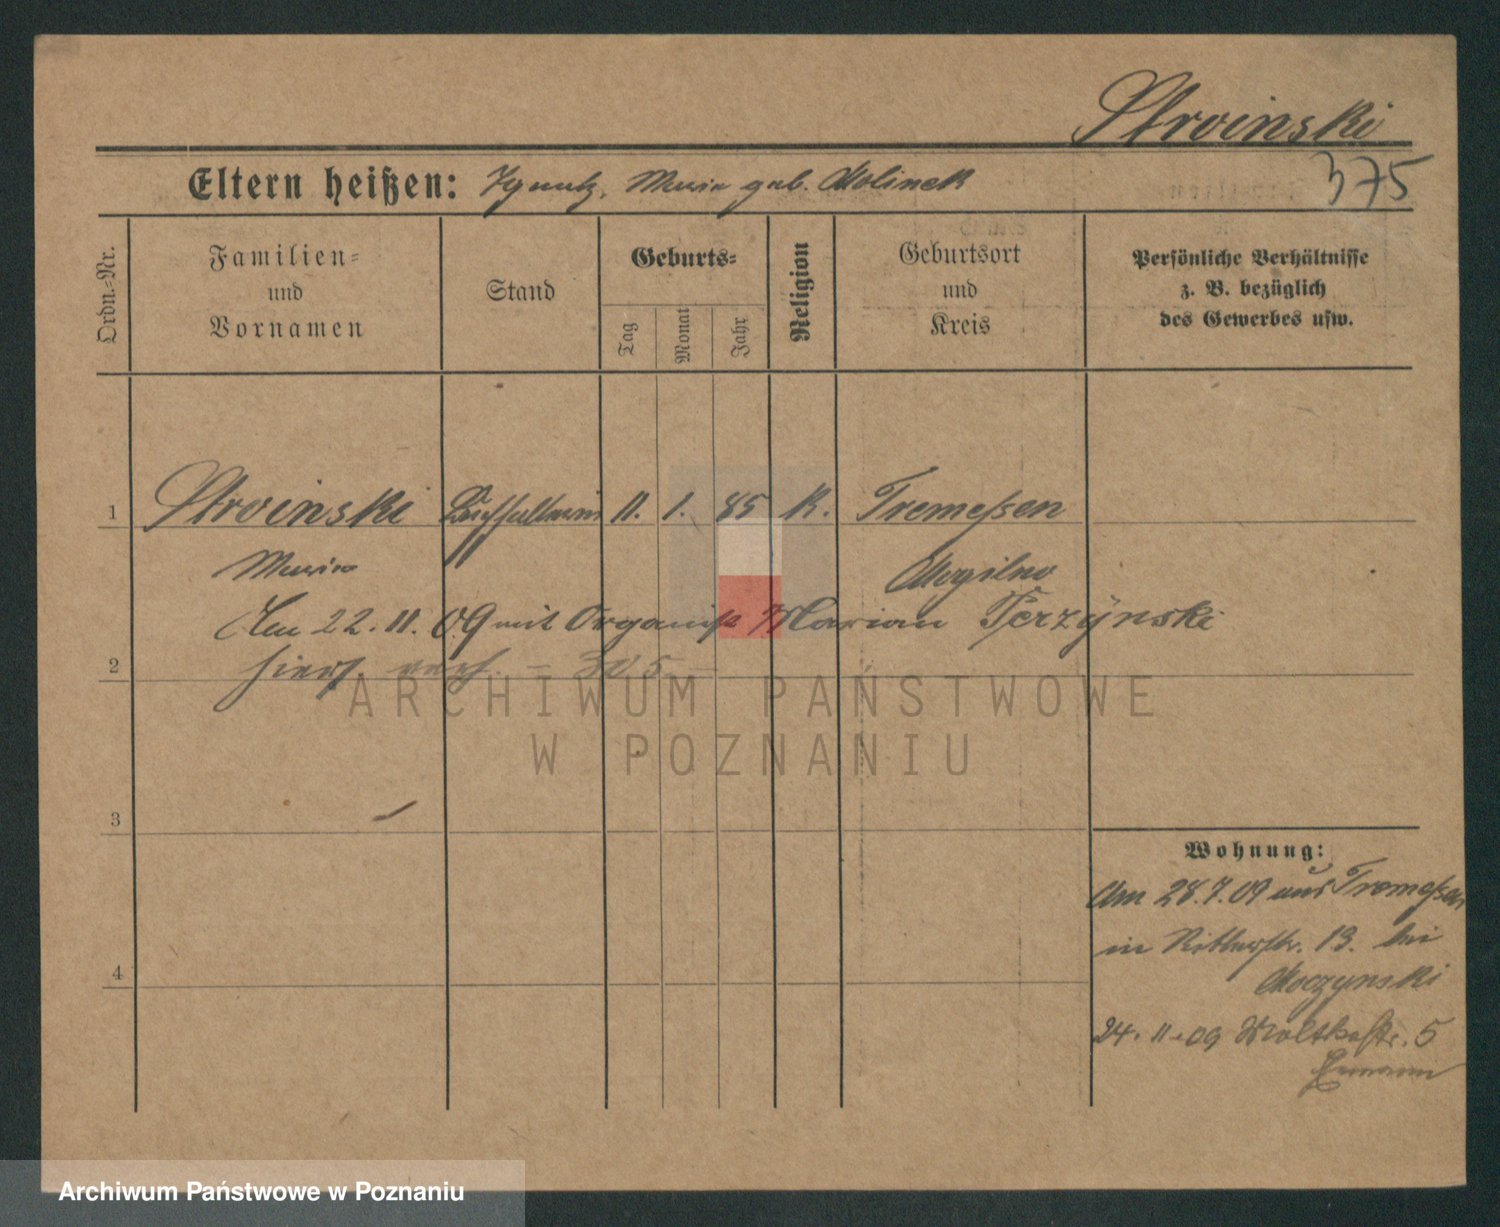 Stroinski
375
Eltern heißen: Ignatz, Maria geb. Molinek
Ordn.-Nr.
Familien-
und
Vornamen
Stand
Geburts-
Tag
Monat
Jahr
Religion
Geburtsort
und
Kreis
Persönliche Verhältnisse
z. B. bezüglich
des Gewerbes usw.
1 Stroinski Buchhalterin 11. 1. 85 K. Tremeßen
Maria Mogilno
Am 22. 11. 09 mit Organist Marian Perzÿnski
hiers. verh.
2
ARCHIWUM PAŃSTWOWE
W POZNANIU
3
4
Wohnung:
Am 28.7.09 aus Tremeßen
in Ritterstr. 13. bei
Moczynski
24. 11. 09 Moltkestr. 5
Archiwum Państwowe w Poznaniu